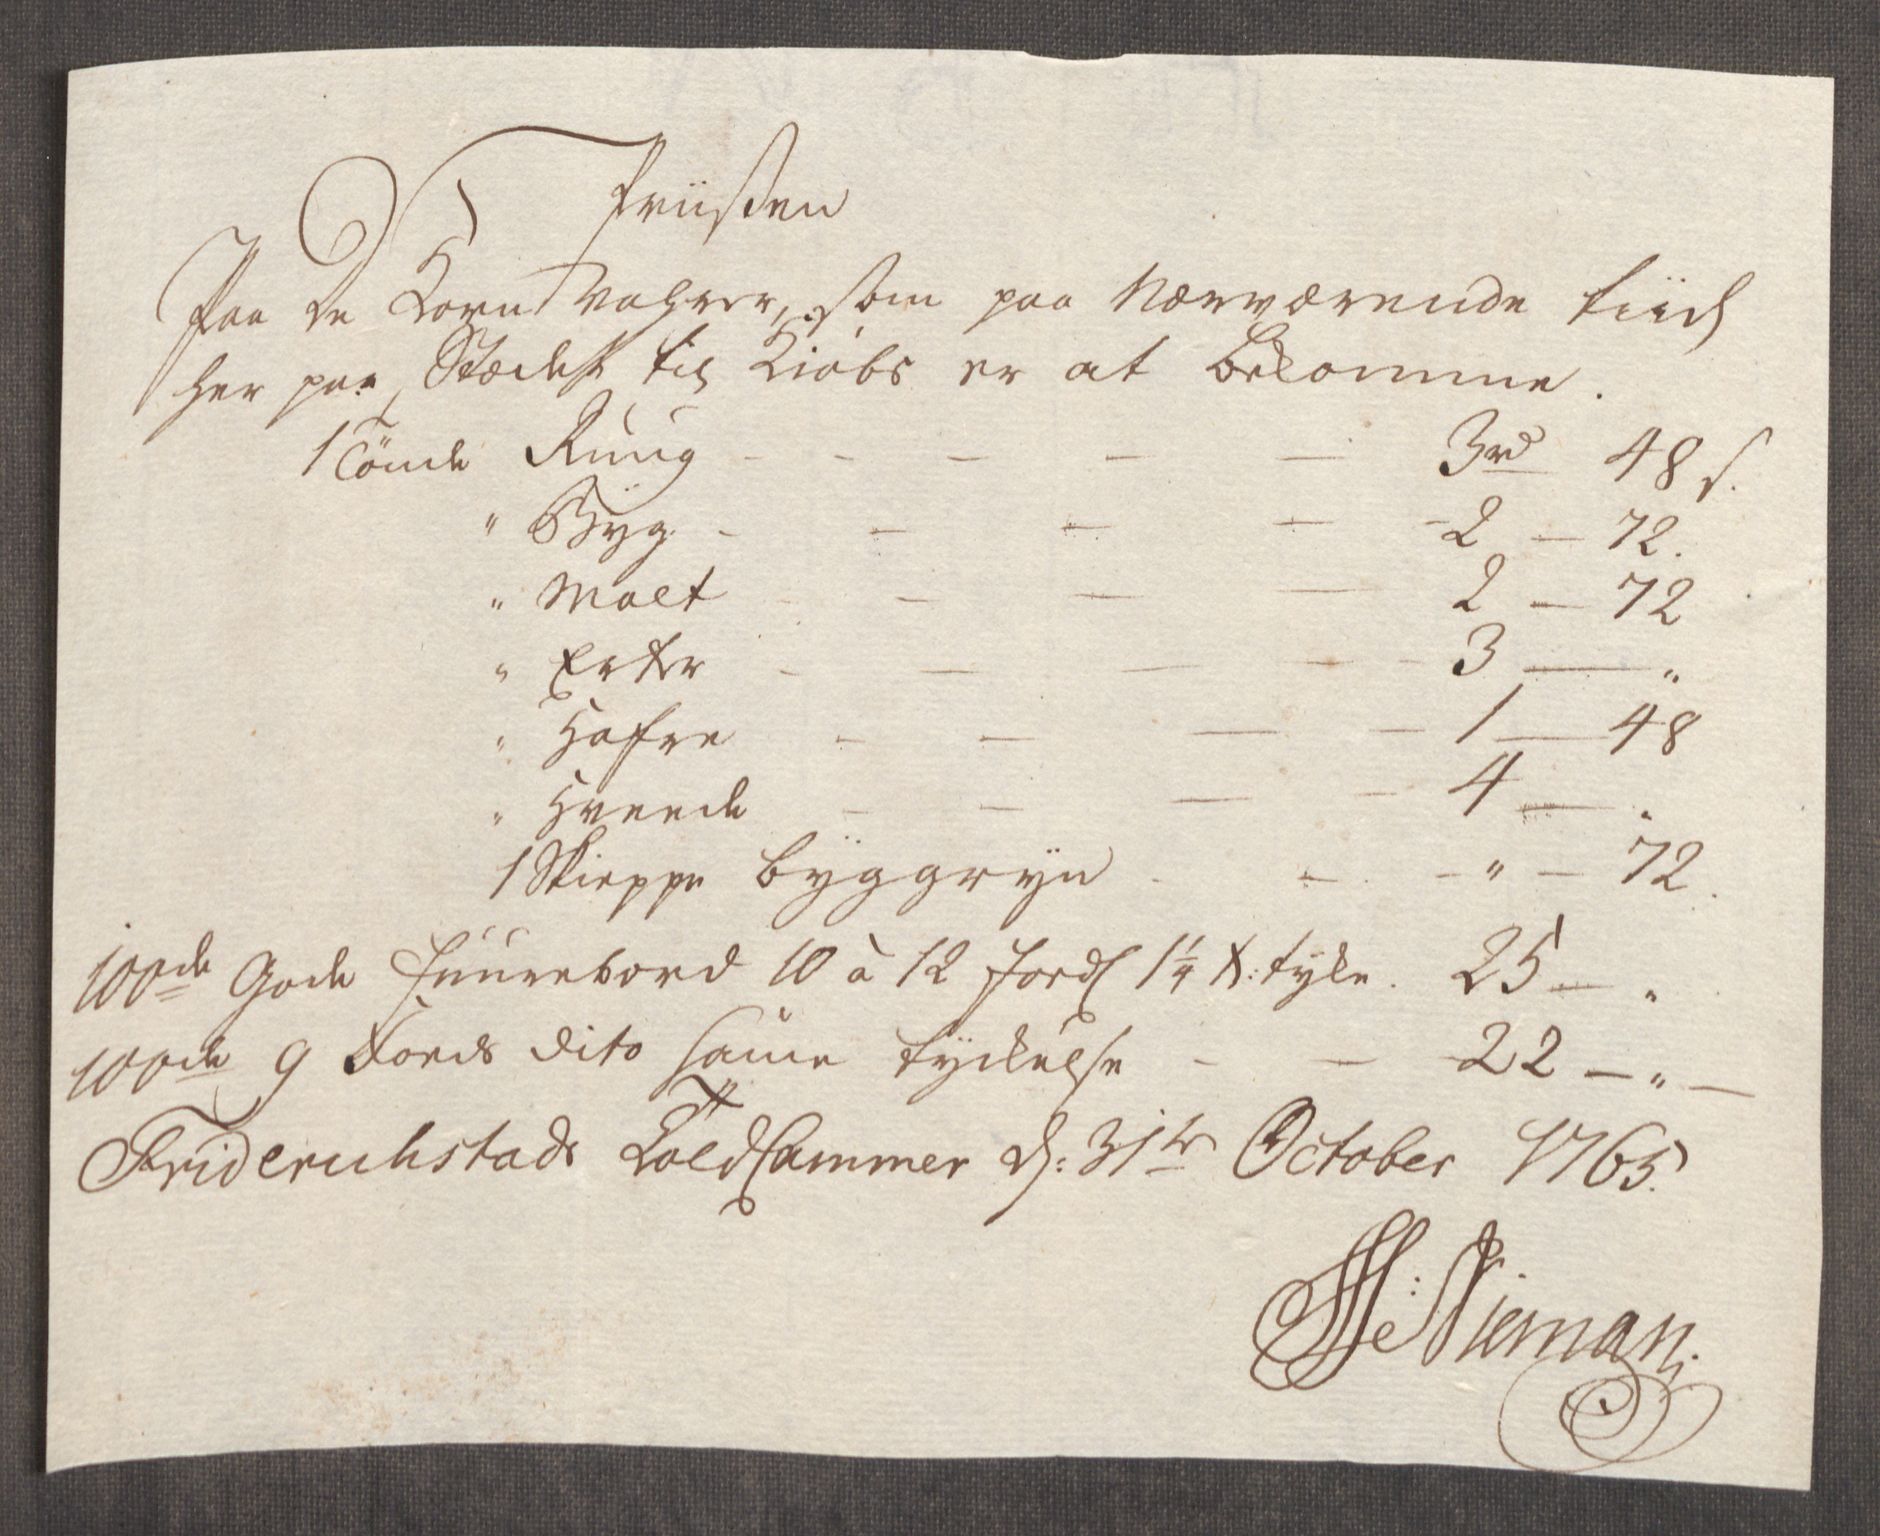 Priißen
Paa de Korn Vahrer, som paa Nærværende tiid
her paa Stædet til Kiøbs er at bekomme.
1 Tönde Ruug - - - - - 3 rd 48 s.
" Byg - - - - - 2 - 72.
" Malt - - - - 2 - 72
" Erter - - - - - 3 - "
" Hafre - - - - 1 - 48
" Hveede - - - - 4 - "
1 Skieppe byggryn - - - " - 72.
100de Gode Fuurebord 10 à 12 Fods 1 1/4 t: tyke. 25 - "
100de 9 Foeds dito same tyckelse - - 22 - " -
Friderichstads Told Cammer d: 31te October 1765.
Nieman